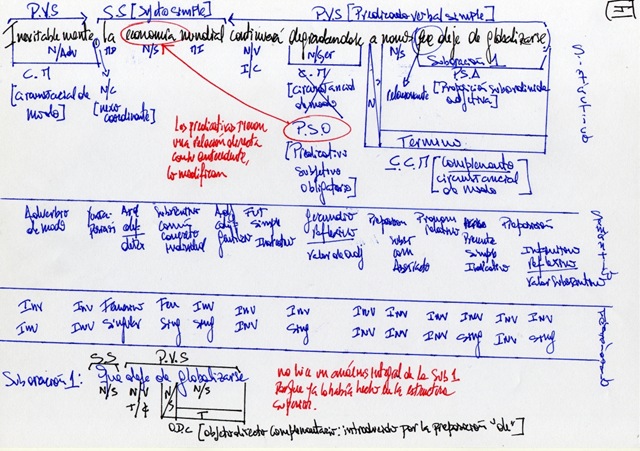 P.V.S S.S [Sujeto simple] P.V.S [Predicado verbal simple]
Inevitablemente, la economía mundial continuará degradándose a menos que deje de globalizarse.
N/Adv MD N/S MI N/V N/Ger N/S Suboración 1
C.M N/C I/C C.M relacionante P.S.A
[circunstancial de modo] [nexo coordinante] [circunstancial de modo] [Proposición subordinada adjetiva]
P.S.O Término
[Predicativo subjetivo obligatorio] C.C.M [complemento circunstancial de modo]
Los predicativos tienen
una relación directa
con su antecedente,
lo modifican
Sintáctico
Adverbio de modo Art def Sustantivo común concreto individual Adj Fut simple Indicativo Gerundio reflexivo valor de adj Preposición Pronom relativo Presente simple Indicativo Preposición Infinitivo reflexivo valor sustantivo
Inv Inv Femenino Fem Inv Inv Inv Inv Inv Inv Inv Inv
Inv Inv Singular Sing Sing Inv Sing Inv Inv Sing Inv Sing
S.S P.V.S
Suboración 1: Que deje de globalizarse
N/S N/V N/S
T
no hice un análisis integral de la Sub 1
Porque ya lo había hecho en la estructura
superior.
O.D.C [objeto directo complementario: introducido por la preposición "de"]